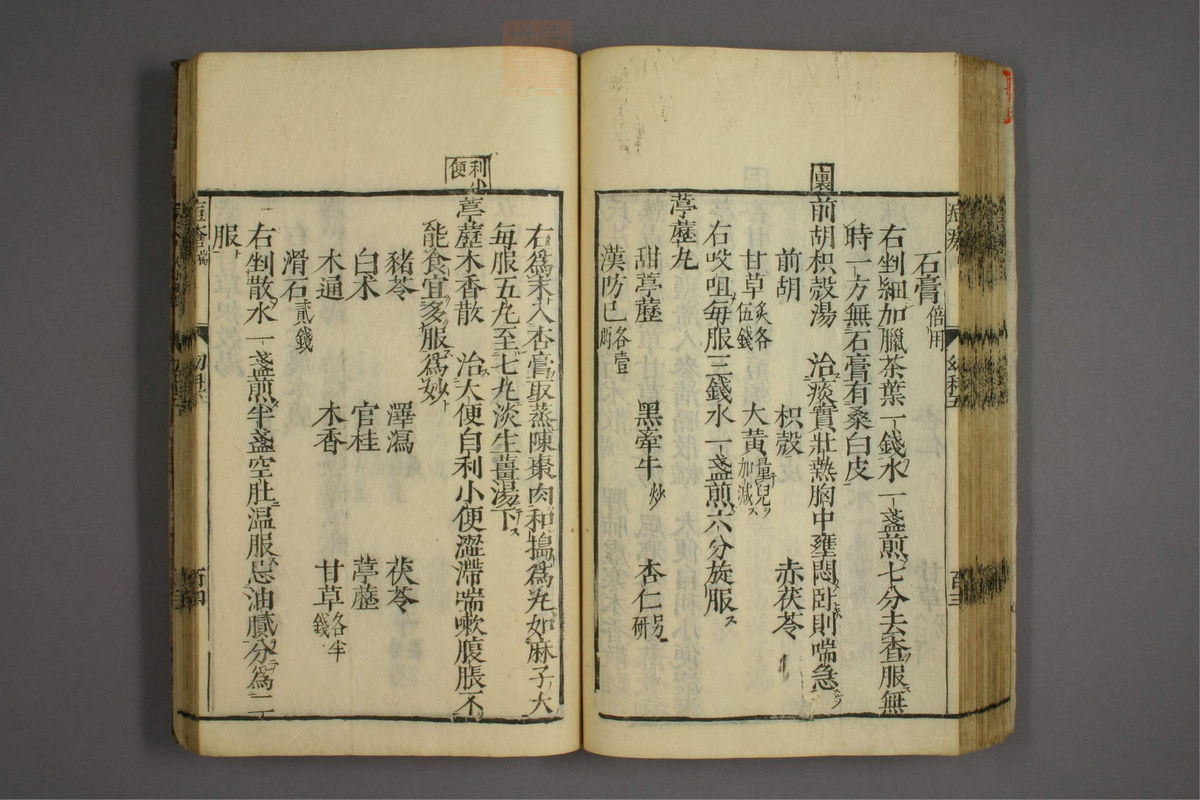 石膏倍用
右剉細加臘茶葉一錢水一盞煎七分去査服無
時一方無石膏有桑白皮
裏
前胡枳殼湯 治痰實壯熱胸中壅悶臥則喘急
前胡 枳殼 赤茯苓
甘草炙各伍錢 大黃量兒ヲ加減ス
右㕮咀每服三錢水一盞煎六分旋服ス
葶藶丸
甜葶藶 黑牽牛炒 杏仁另研
漢防己各壹兩
右為末入杏膏取蒸陳棗肉和搗為丸如麻子大
每服五丸至七丸淡生薑湯下ス
利小便
葶藶木香散 治大便自利小便澀滯喘嗽腹脹不
能食宜多服為妙
豬苓 澤瀉 茯苓
白术 官桂 葶藶
木通 木香 甘草各半錢
滑石貳錢
右剉散水一盞煎半盞空肚温服忌油膩分為二
服
百三
百四